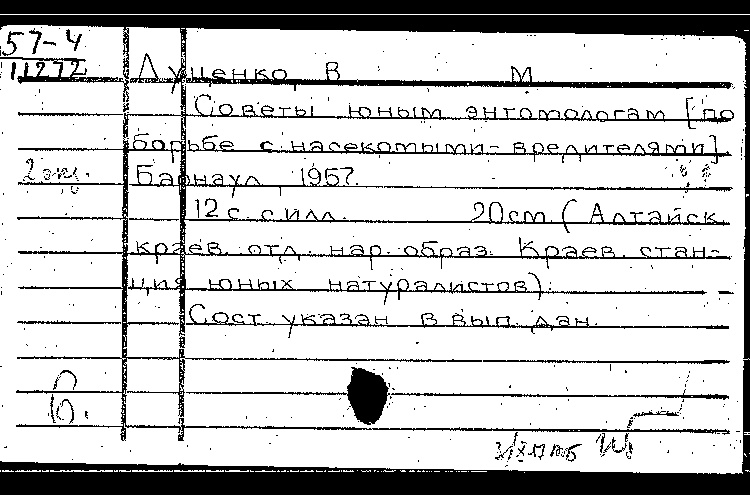 57-4
11272
Луценко, В М
Советы юным энтомологам [по
борьбе с насекомыми-вредителями].
2 экз. Барнаул, 1957.
12 с. с илл. 20 см. (Алтайск.
краев. отд. нар. образ. Краев. стан-
ция юных натуралистов).
Сост. указан в вып. дан.